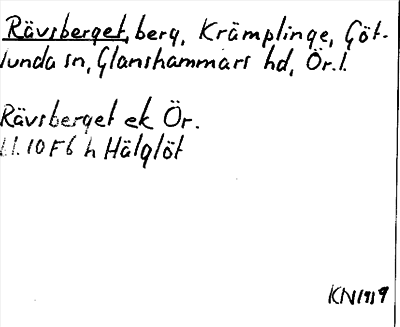 Rävsberget, berg, Krämplinge, Göt-
lunda sn, Glanshammars hd, Ör. l.
Rävsberget ek Ör.
10 F 6 h Hälglöt
KN 1919